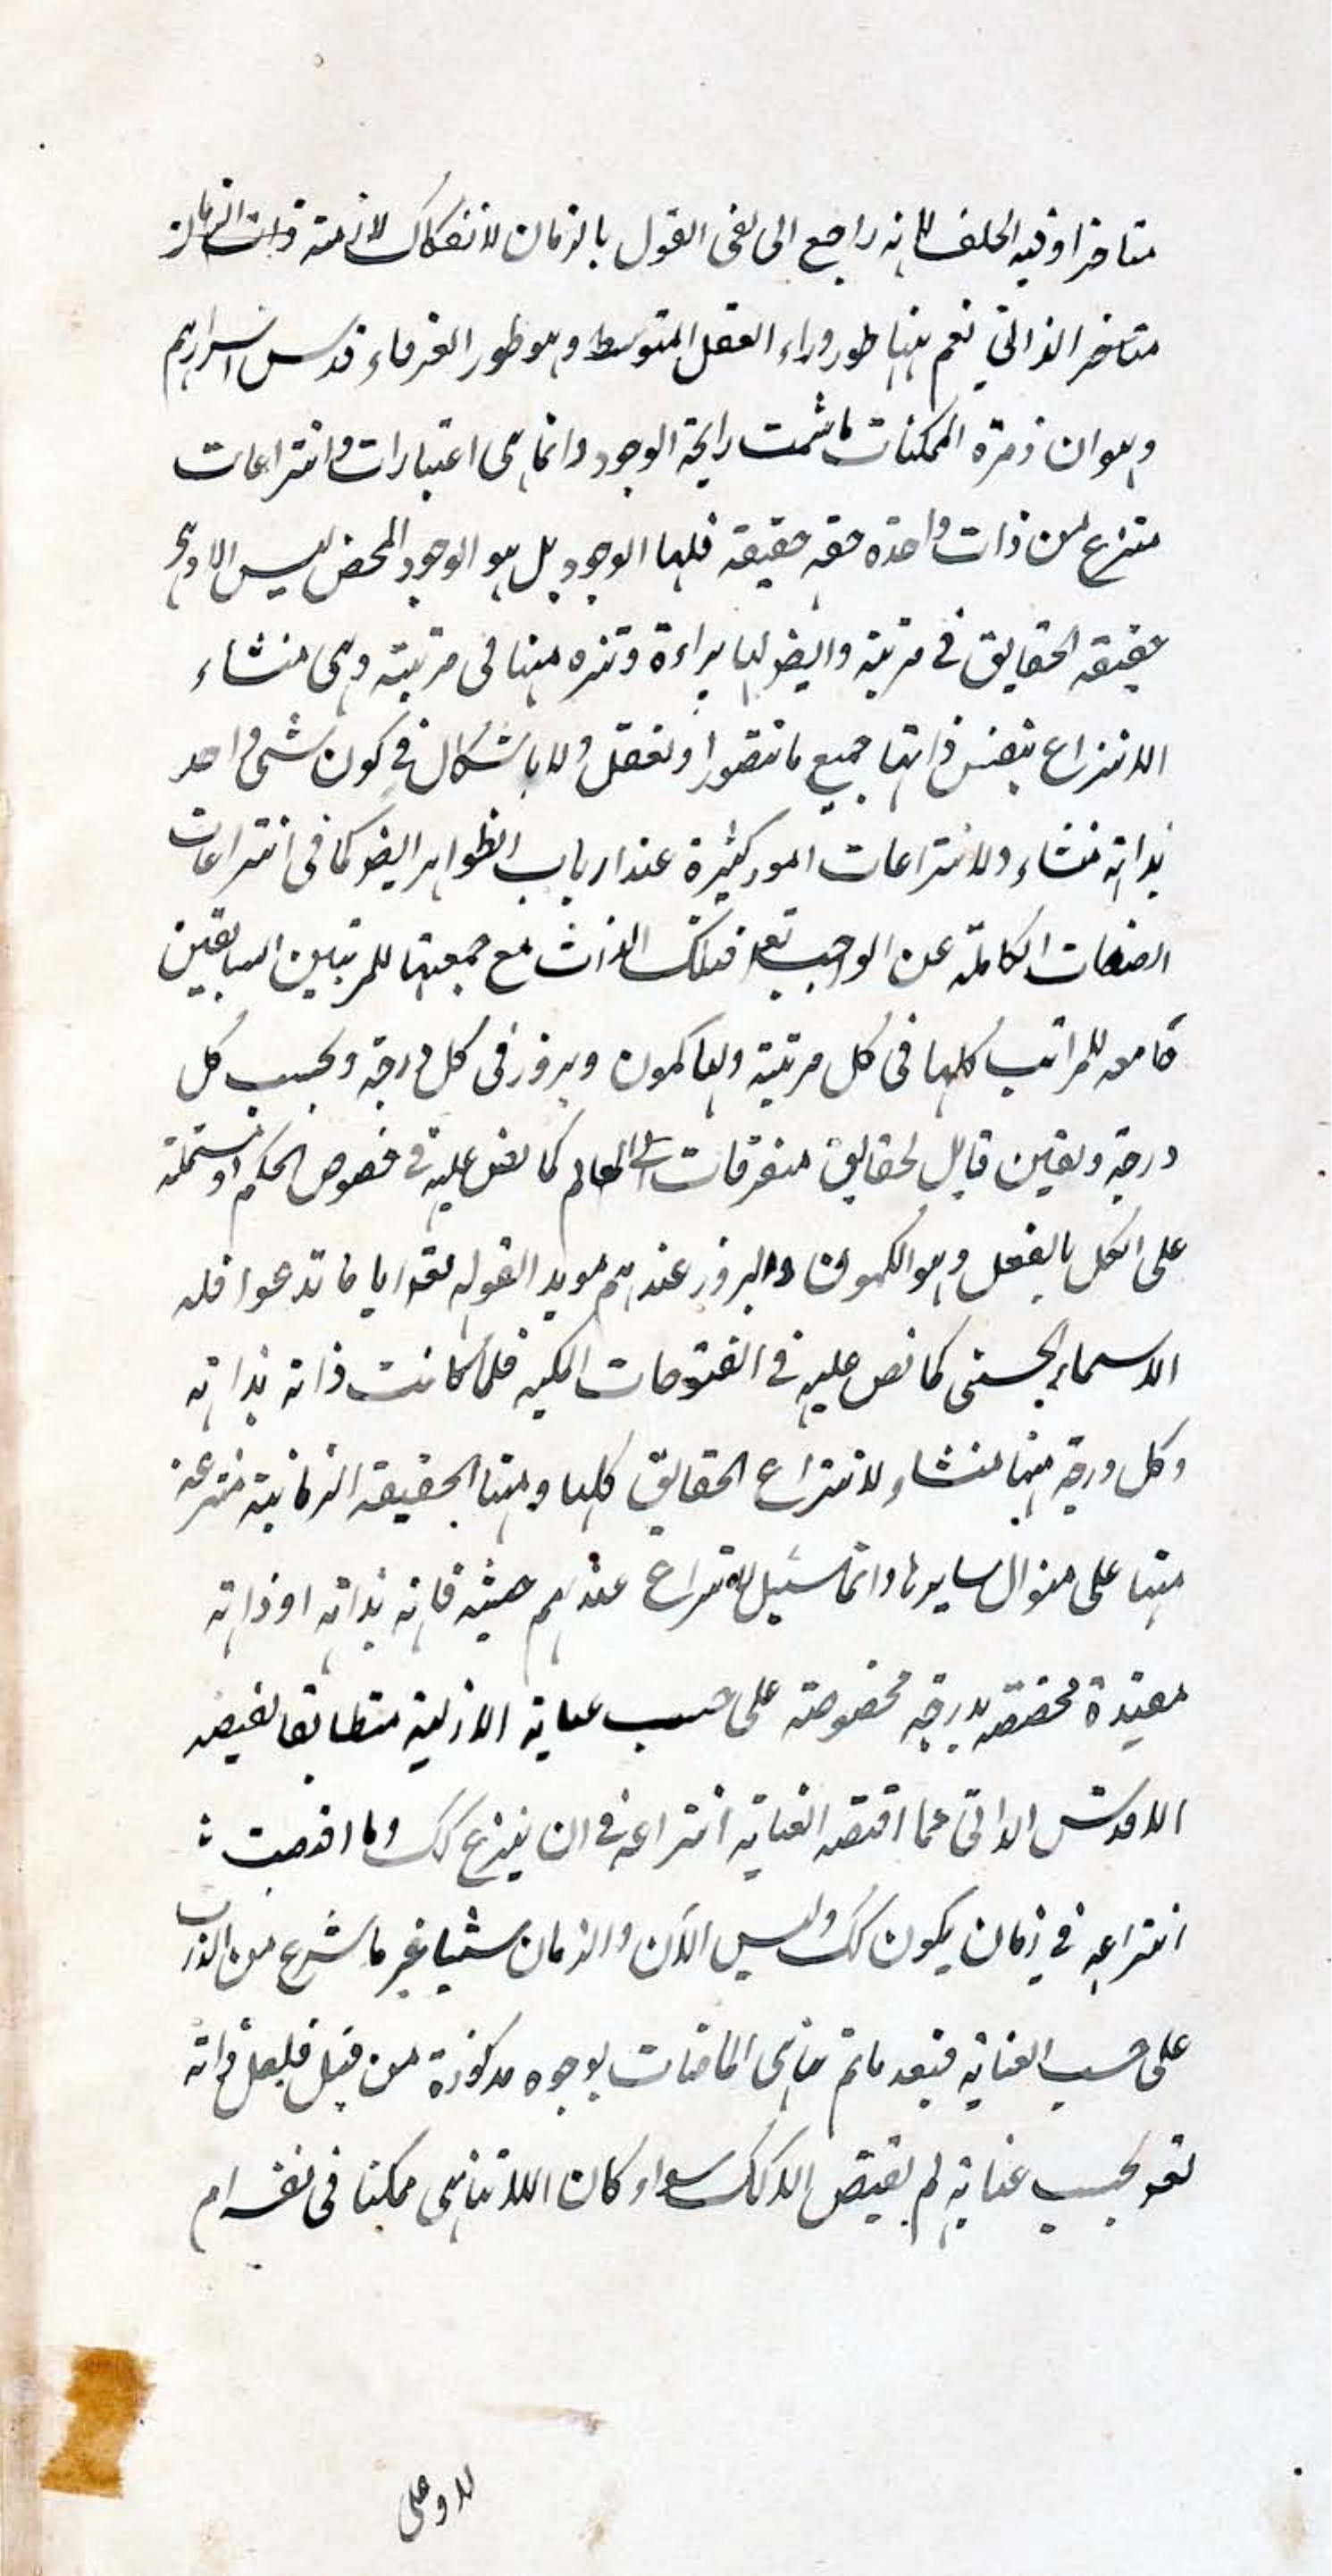 متاخرا وفيه الخلف لانه راجع الى نفى القول بالزمان لانفكاك لازمته
متاخر الذاتي نعم ههنا طور وراء العقل المتوسط وهو طور العرفاء قدس اسرارهم
وهو ان زمرة الممكنات ما شمت رايحة الوجود وانما هى اعتبارات وانتزاعات
منتزع من ذات واحدة حقه حقيقة فلها الوجود بل هو الوجود المحض ليس الا وهى
حقيقة الحقايق في مرتبة وايضو لها براءة وتنزه منها فى مرتبته وهى منشاء
الانتزاع بنفس ذاتها جميع ما نتصور او نعقل ولا باشكال في كون شى واحد
بذاته منشاء ولانتزاعات امور كثيرة عند ارباب الظواهر ايضو كما فى انتزاعات
الصفات الكاملة عن الواجب تعه فتلك الذات مع جمعيتها للمرتبتين السابقين
جامعه للمراتب كلها فى كل مرتبة ولها كمون وبروز فى كل درجة وبحسب كل
درجة وتعين قابل لحقايق متفرقات العالم كما نص عليه في فصوص الحكم او مشتملة
على الكل بالفعل وهو الكمون والبروز عندهم مويد القوله تعه ايا ما تدعوا فله
الاسماء الحسنى كما نص عليه في الفتوحات المكيه فلما كانت ذاته بذاته
وكل درجة منها منشاء لانتزاع الحقايق كلها ومنها الحقيقة الزمانية منتزعة
منها على منوال سايرها وانما سبيل الانتزاع عندهم حيثيه فانه بذاته او ذاته
مقيدة مختصه بدرجه مخصوصة على حسب عناية الازلية متطابقا لفيضه
الاقدس الذاتى عما اقتضه العناية انتزاعه في ان ينزع كك وما اقتضت
انتزاعه في زمان يكون كك وليس الآن والزمان شيئا غير ما شرع من الذات
على حسب العناية فبعد ما تم تناهى الماضيات بوجوه مذكورة من قبل فلعل ذاته
تعه بحسب عنايته لم يقتض الا كك سواء كان اللاتناهى ممكنا فى نفسه ام
لا وعلى